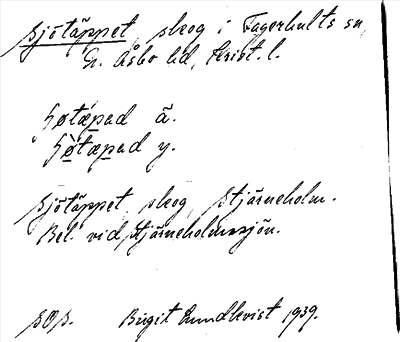 Sjötäppet, skog i Fagerhults sn,
N. Åsbo hd, Krist. l.
ʃøtæpad ä.
ʃøtæpad y.
Sjötäppet, skog, Stjärneholm.
Bel. vid Stjärneholmssjön.
SOS. Birgit Lundkvist 1939.